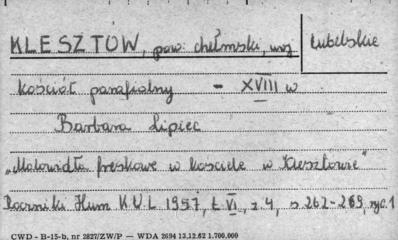 KLESZTÓW, pow. chełmski, woj. lubelskie
kościół parafialny - XVIII w
Barbara Lipiec
"Malowidła freskowe w kościele w Klesztowie"
Roczniki Hum K.U.L 1957, t. VI, z 4, s 262-269, ryc. 1
CWD - B-15-b, nr 2827/ZW/P — WDA 2694 13.12.62 1.700.000